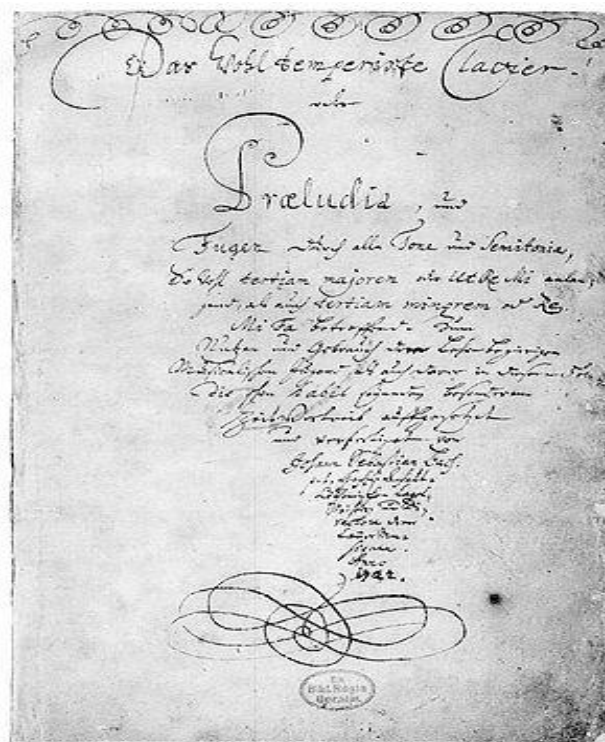 Das Wohltemperirte Clavier.
oder
Præludia, und
Fugen durch alle Tone und Semitonia,
So wohl tertiam majorem oder Ut Re Mi anlan-
gend, als auch tertiam minorem oder Re
Mi Fa betreffend. Zum
Nutzen und Gebrauch der Lehrbegierigen
Musicalischen Jugend, als auch derer in diesem
die schon habil seyenden besonderem
Zeitvertreib auffgesetzet
und verfertiget von
Johann Sebastian Bach.
Anno
1722.
Ex
Bibl. Regia
Berolin.